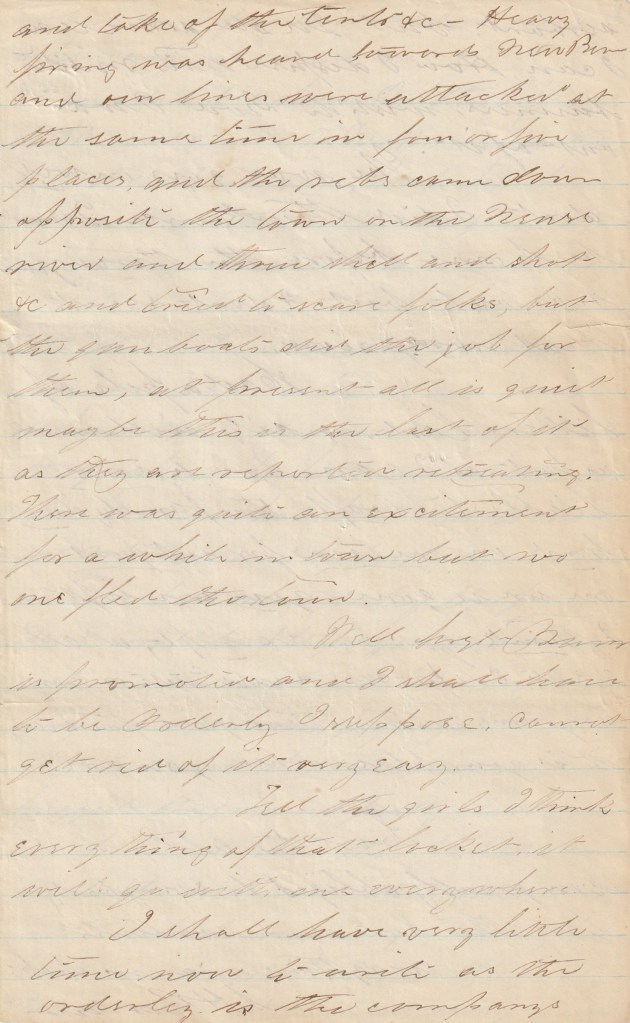 and take of the tents &c - Heavy
firing was heard towards New Bern
and our lines were attacked at
the same time in four or five
places, and the rebs came down
opposite the town on the Neuse
river and threw shell and shot
&c and tried to scare folks, but
the gun boats did the job for
them, at present all is quiet
maybe this is the last of it
as they are reported retreating.
There was quite an excitement
for a while in town but no
one fled the town.
Well
is promoted and I shall have
to be Orderly I suppose, cannot
get rid of it very easy.
Tell the girls I think
everything of that locket, it
will go with me everywhere
I shall have very little
time now to write as the
orderly is the companys